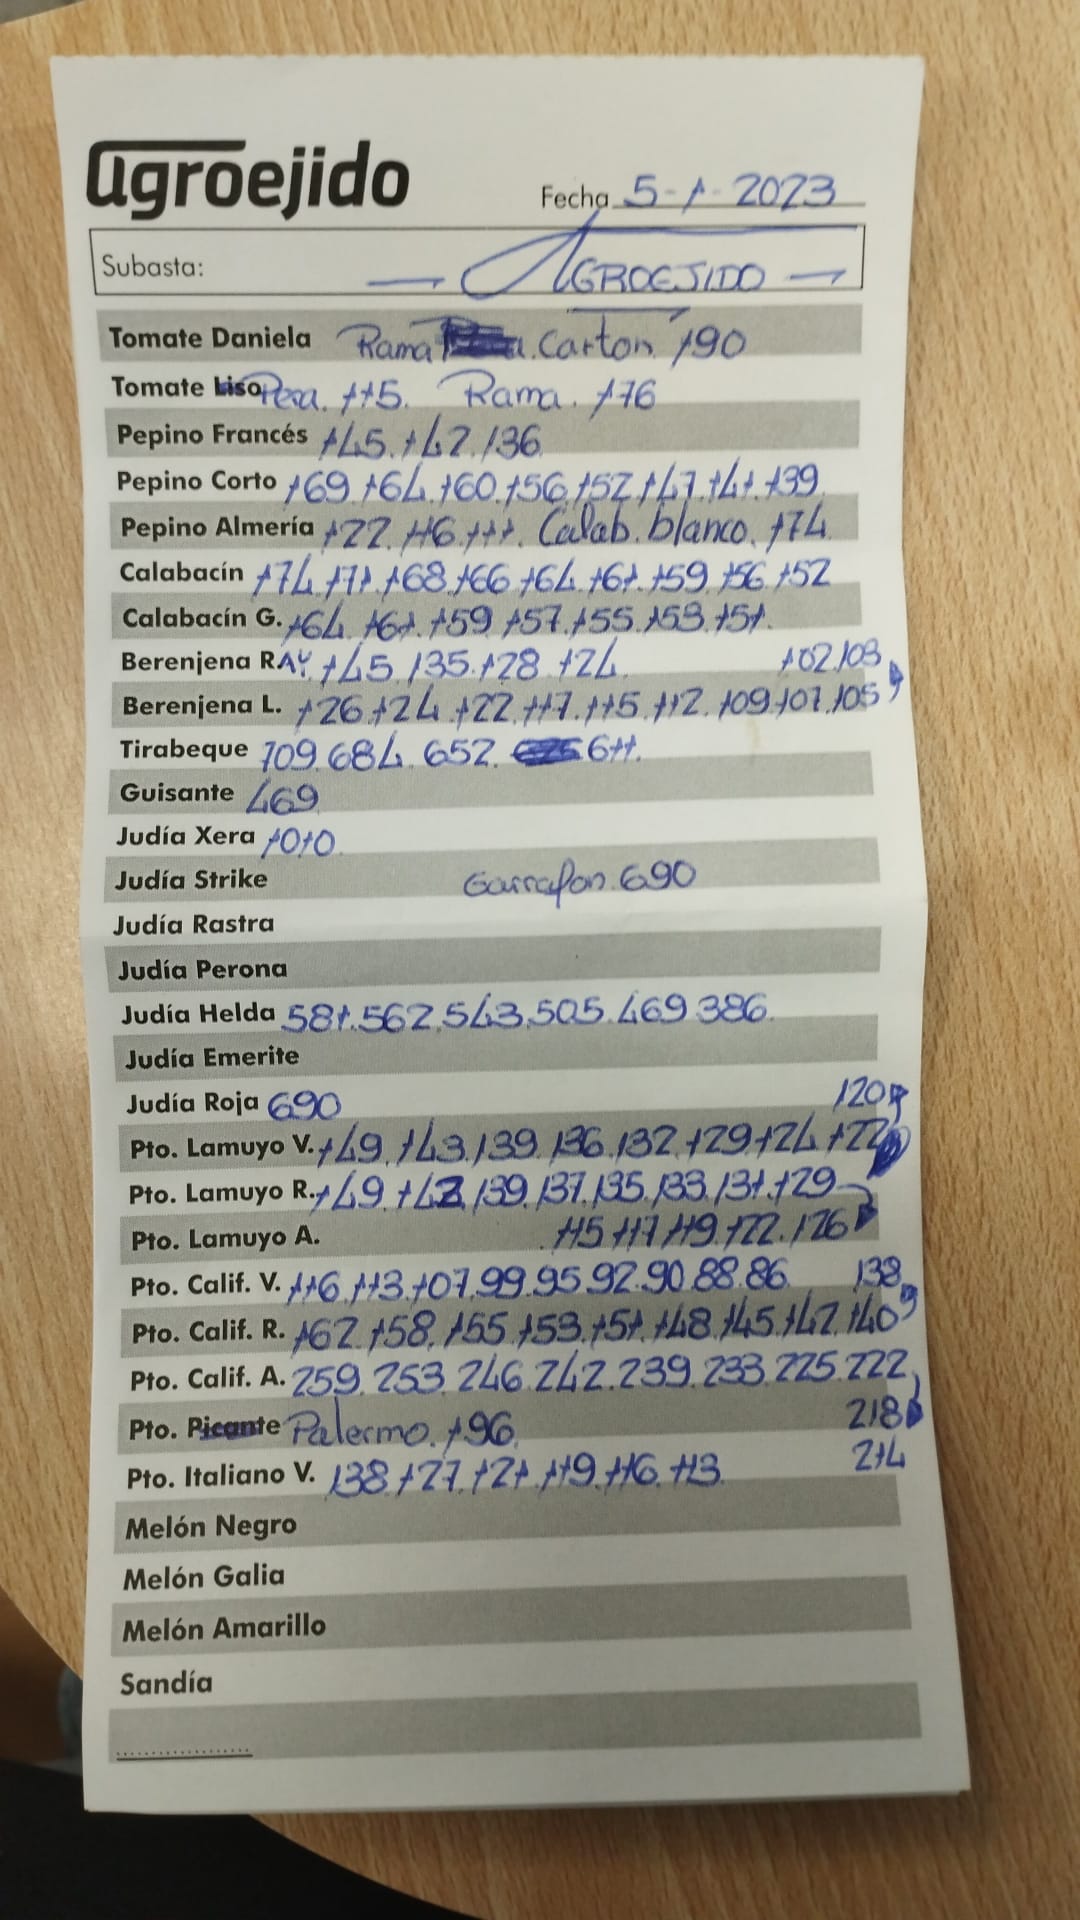 agroejido
Fecha 5-1-2023
Subasta: AGROEJIDO
Tomate Daniela Rama Carton 190
Tomate Liso Pera. 115. Rama. 176
Pepino Francés 145.142.136
Pepino Corto 169.164.160.156.152.147.141.139
Pepino Almería 122.116.111. Calab. blanco. 174
Calabacín 174.171.168.166.164.161.159.156.152
Calabacín G. 164.161.159.157.155.153.151.
Berenjena RAY. 145.135.128.124. 102.103
Berenjena L. 126.124.122.117.115.112.109.107.105
Tirabeque 709.684.652. 611.
Guisante 469
Judía Xera 1010
Judía Strike Garrafon 690
Judía Rastra
Judía Perona
Judía Helda 581.562.543.505.469.386.
Judía Emerite
Judía Roja 690 120
Pto. Lamuyo V. 149.143.139.136.132.129.124.122
Pto. Lamuyo R. 149.142.139.137.135.133.131.129
Pto. Lamuyo A. 115.117.119.122.126
Pto. Calif. V. 116.113.107.99.95.92.90.88.86. 138
Pto. Calif. R. 162.158.155.153.151.148.145.142.140
Pto. Calif. A. 259.253.246.242.239.233.225.222
Pto. Picante Palermo. 196. 218
Pto. Italiano V. 138.127.121.119.116.113. 214
Melón Negro
Melón Galia
Melón Amarillo
Sandía